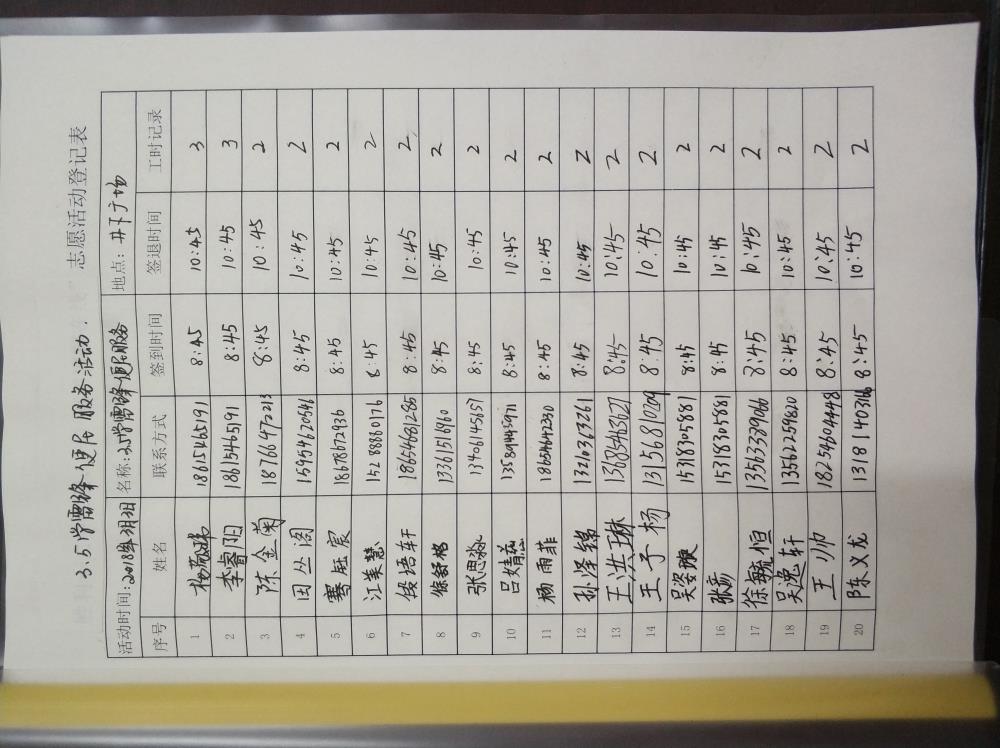 3.5学雷锋便民服务活动. 志愿活动登记表
活动时间:2018年3月3日 名称:3.5学雷锋便民服务 地点:井下广场
序号 姓名 联系方式 签到时间 签退时间 工时记录
1 18615465191 8:45 10:45 3
2 李睿阳 18615465191 8:45 10:45 3
3 陈金菊 18766472213 8:45 10:45 2
4 田丛阁 15954620546 8:45 10:45 2
5 骞钰宸 18678672936 8:45 10:45 2
6 江美慧 15288860176 8:45 10:45 2
7 段培轩 18654681285 8:45 10:45 2
8 徐舒格 13361516960 8:45 10:45 2
9 张思淼 13406145657 8:45 10:45 2
10 吕婧菘 13589445971 8:45 10:45 2
11 杨雨菲 18654642330 8:45 10:45 2
12 孙泽锦 8:45 10:45 2
13 王洪琳 13683463627 8:45 10:45 2
14 王子杨 13156810209 8:45 10:45 2
15 吴姿腴 15318305881 8:45 10:45 2
16 张彦 15318305881 8:45 10:45 2
17 徐毓恒 13563399066 8:45 10:45 2
18 吴逸轩 13562259820 8:45 10:45 2
19 王帅 18254604448 8:45 10:45 2
20 陈义龙 13181403116 8:45 10:45 2